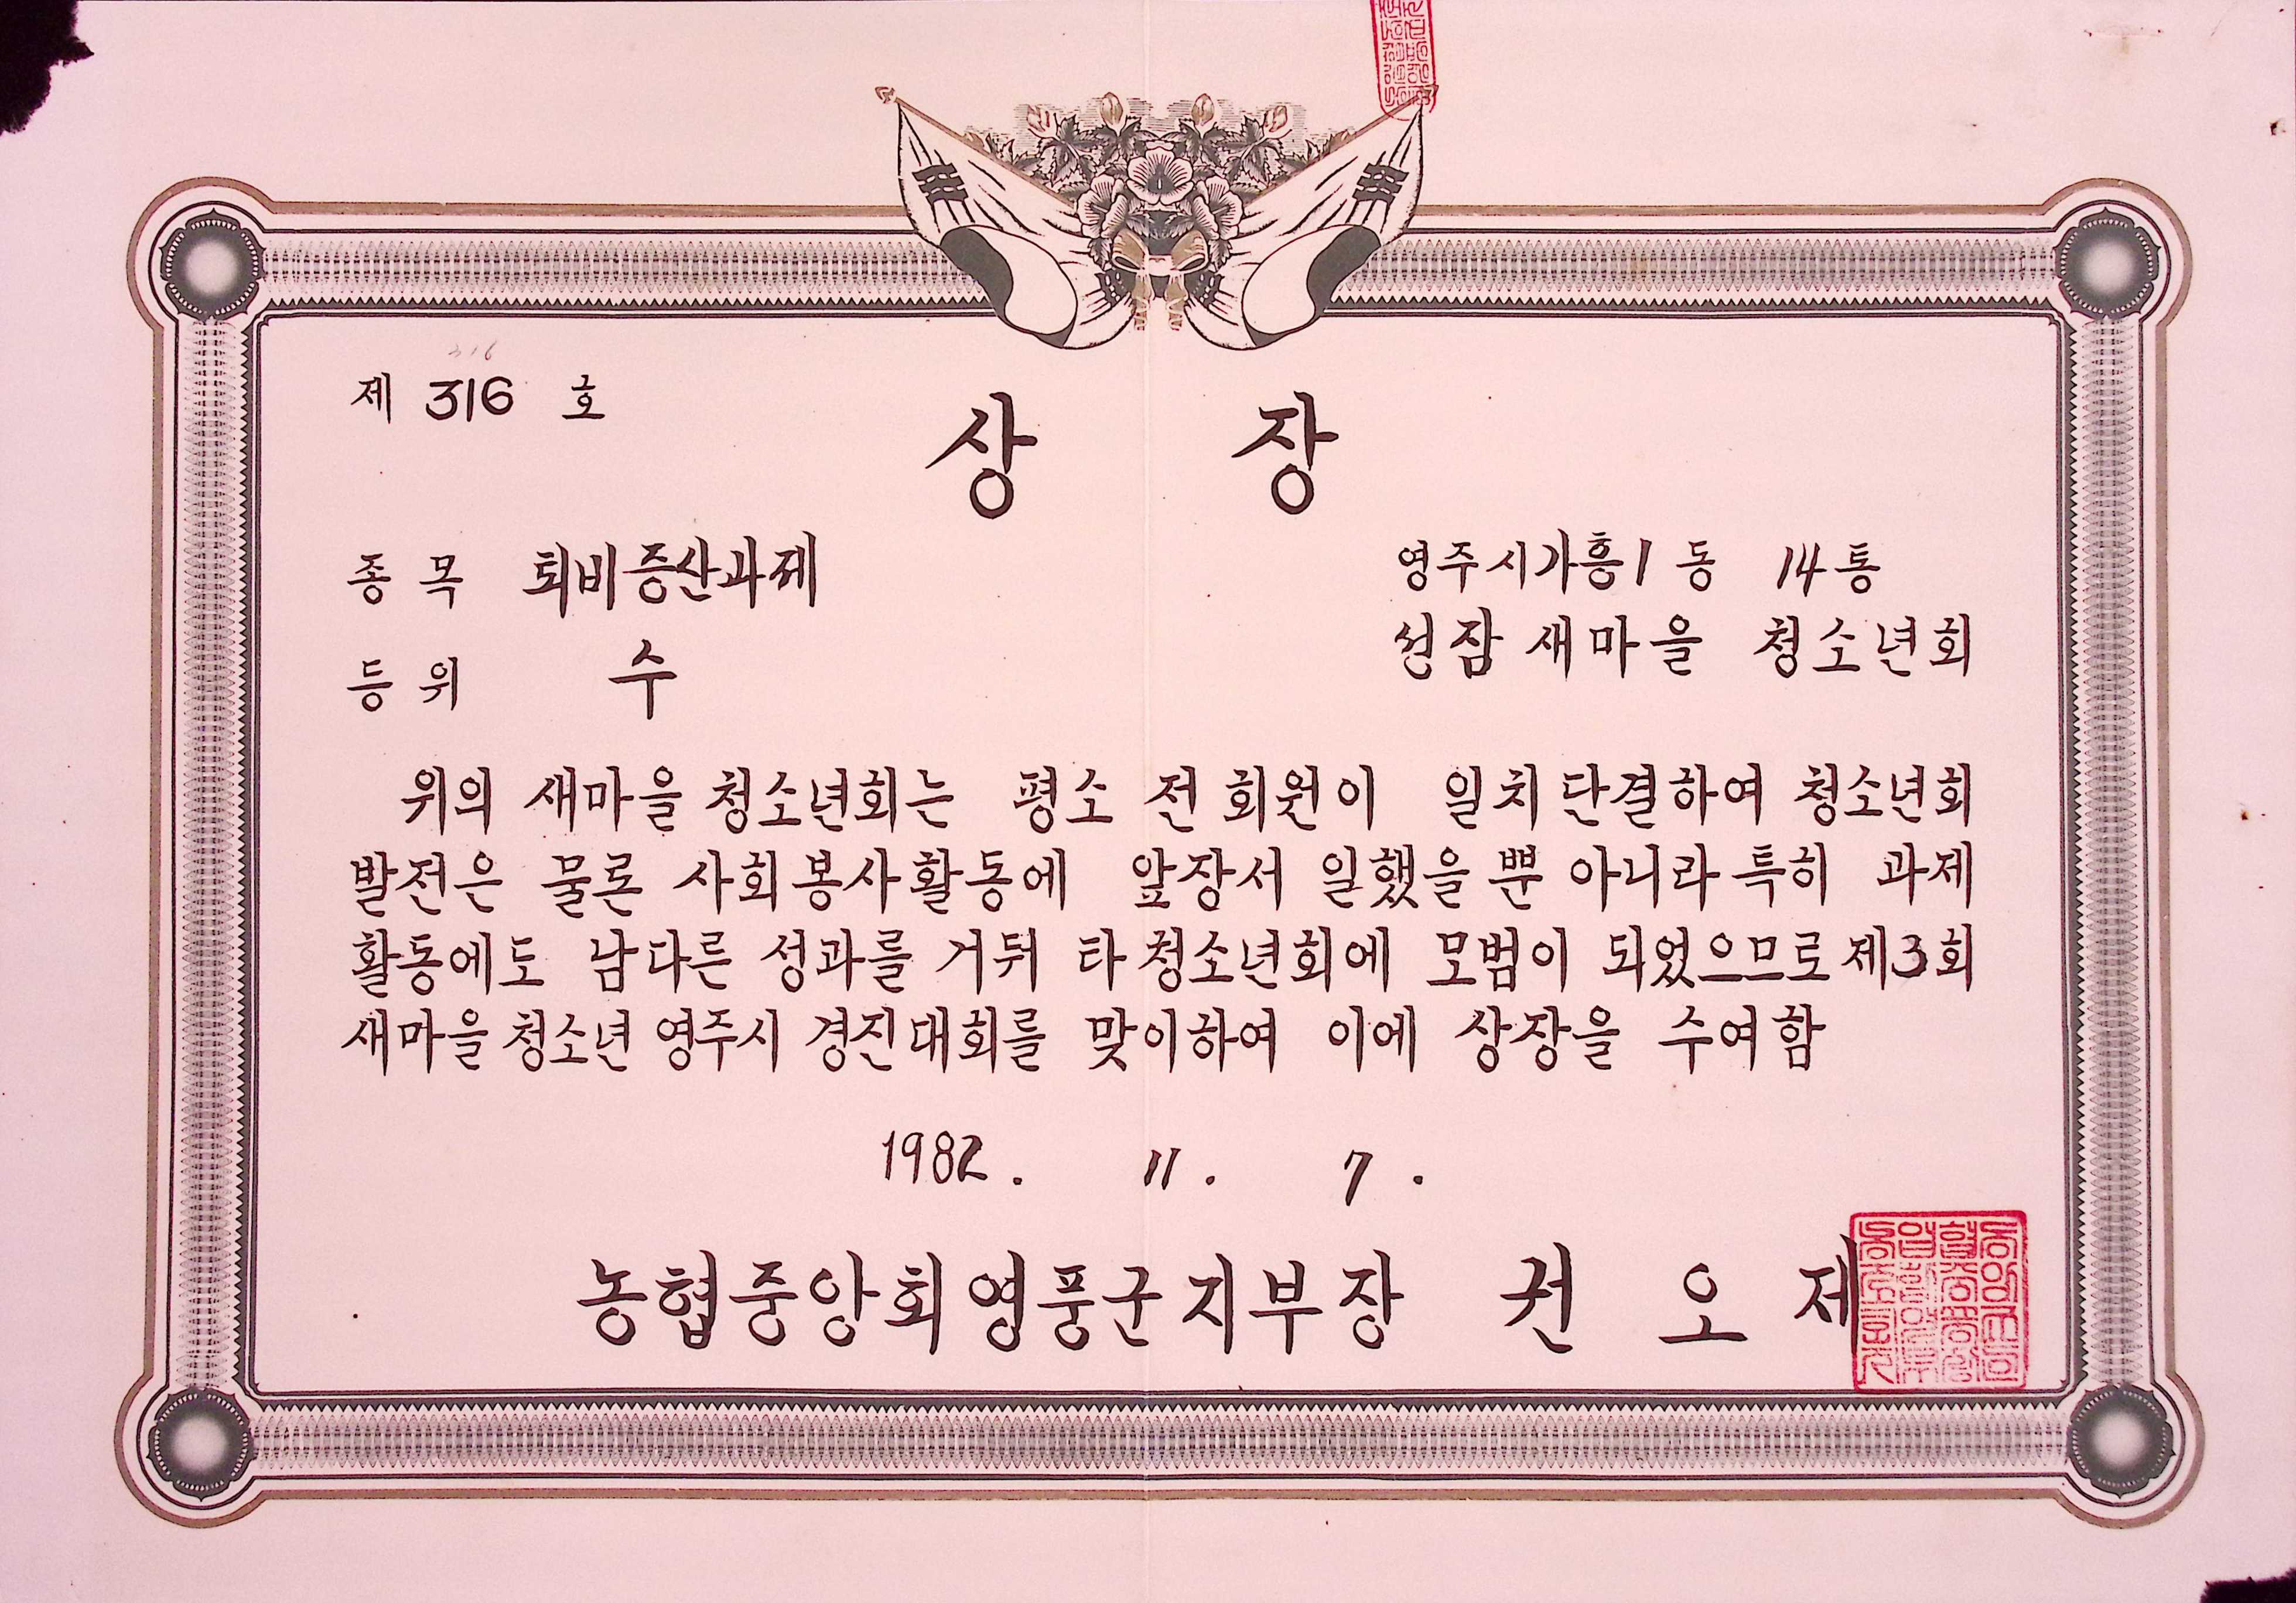 316
제 316 호
상 장
종 목 퇴비증산과제
등 위 수
영주시가흥1동 14통
선잠 새마을 청소년회
위의 새마을 청소년회는 평소 전 회원이 일치단결하여 청소년회
발전은 물론 사회봉사활동에 앞장서 일했을 뿐 아니라 특히 과제
활동에도 남다른 성과를 거둬 타 청소년회에 모범이 되었으므로 제3회
새마을 청소년 영주시 경진대회를 맞이하여 이에 상장을 수여함
1982. 11. 7.
농협중앙회영풍군지부장 권 오 제